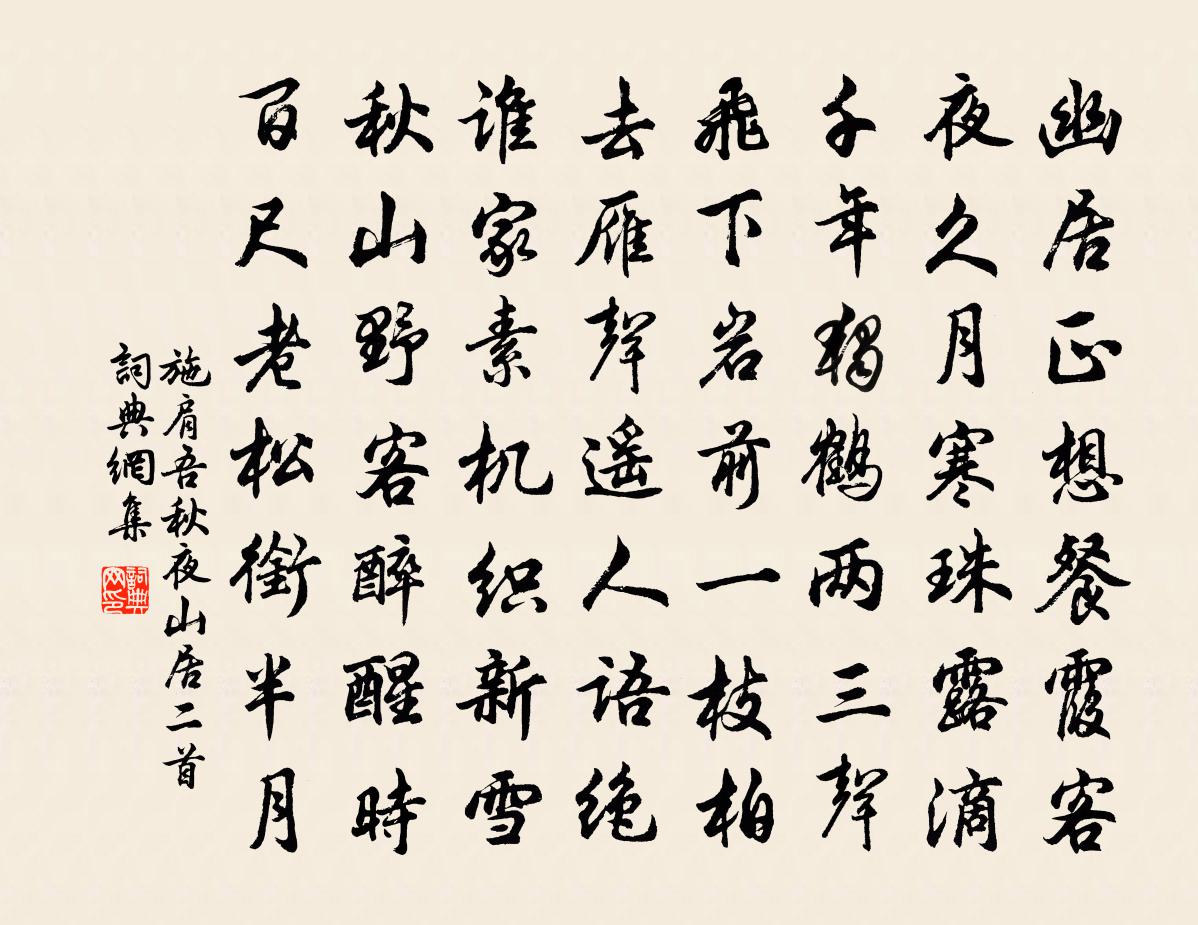 幽居正想餐霞客
夜久月寒珠露滴
千年獨鹤两三聲
飛下岩前一枝柏
去雁聲遥人语绝
谁家素机织新雪
秋山野客醉醒時
百尺老松銜半月
施肩吾秋夜山居二首
詞典網集
詞典网印